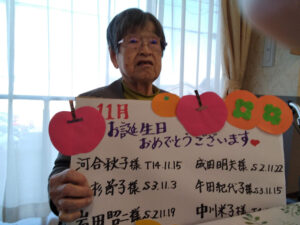 11月
お誕生日
おめでとうございます
河合秋子様 T14.11.15
成田明夫様 S2.11.22
S3.11.3
午田紀代子様 S3.11.15
岩田昭一様 S2.11.19
中川米子様